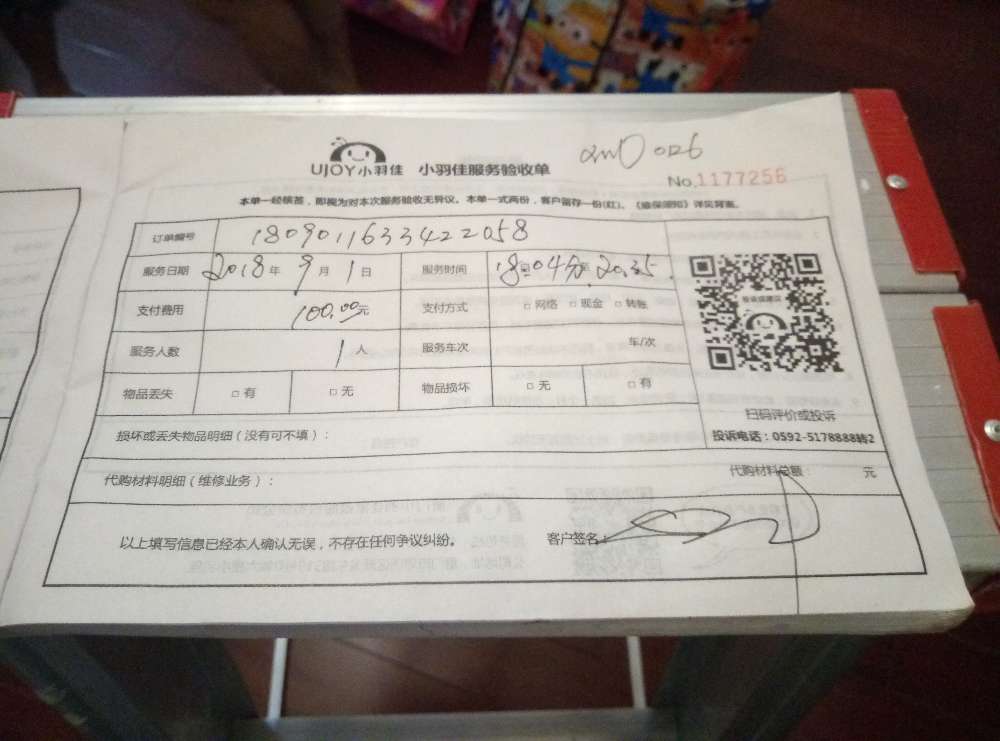 UJOY小羽佳 小羽佳服务验收单
No.1177256
本单一经核签，即视为对本次服务验收无异议。本单一式两份，客户留存一份(红)。《维保须知》详见背面。
订单编号 1809011633422058
服务日期 2018年9月1日 服务时间 18:04分 20:35
支付费用 100.00元 支付方式 □网络 □现金 □转账
服务人数 1人 服务车次 车/次
物品丢失 □有 □无 物品损坏 □无 □有
扫码评价或投诉
损坏或丢失物品明细（没有可不填）： 投诉电话：0592-5178888转2
代购材料明细（维修业务）： 代购材料总额： 元
以上填写信息已经本人确认无误，不存在任何争议纠纷。 客户签名：